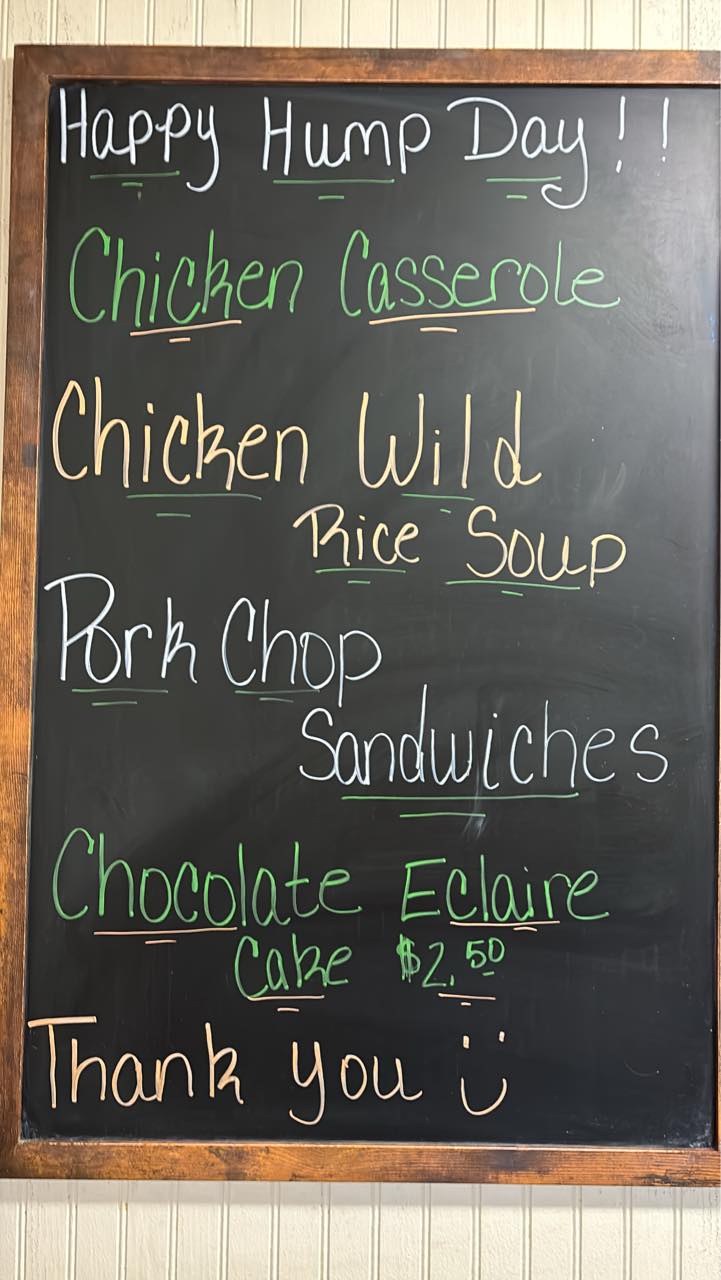 Happy Hump Day!!
Chicken Casserole
Chicken Wild
Rice Soup
Pork Chop
Sandwiches
Chocolate Eclaire
Cake $2.50
Thank you :)